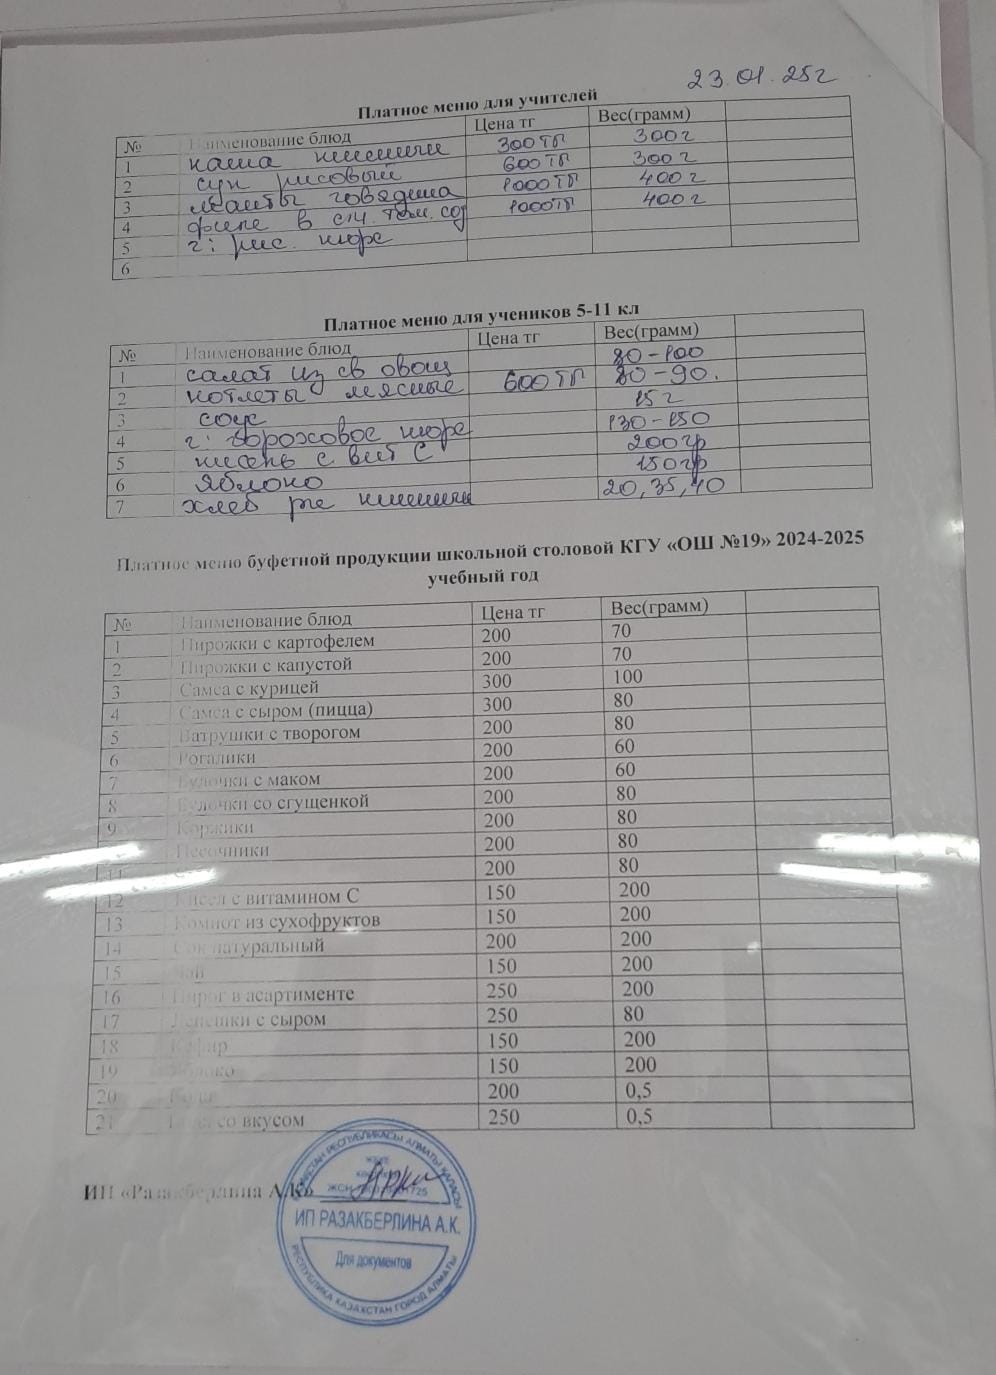 23.01.25г
Платное меню для учителей
№ Наименование блюд Цена тг Вес(грамм)
1 каша пшенич 300тг 300г
2 суп рисовый 600тг 300г
3 манты говядина 1000тг 400г
4 филе в сл. том. соу 1000тг 400г
5 г: рис. пюре
6
Платное меню для учеников 5-11 кл
№ Наименование блюд Цена тг Вес(грамм)
1 салат из св овощ 80-100
2 котлеты мясные 600тг 80-90.
3 соус 15г
4 г: гороховое пюре 130-150
5 кисель с вит С 200гр
6 яблоко 150гр
7 хлеб рж пшенич 20,35,40
Платное меню буфетной продукции школьной столовой КГУ «ОШ №19» 2024-2025
учебный год
№ Наименование блюд Цена тг Вес(грамм)
1 Пирожки с картофелем 200 70
2 Пирожки с капустой 200 70
3 Самса с курицей 300 100
4 Самса с сыром (пицца) 300 80
5 Ватрушки с творогом 200 80
6 Рогалики 200 60
7 Булочки с маком 200 60
8 Булочки со сгущенкой 200 80
9 Коржики 200 80
Песочники 200 80
11 200 80
12 Кисел с витамином С 150 200
13 Компот из сухофруктов 150 200
14 Сок натуральный 200 200
15 Чай 150 200
16 Пирог в асартименте 250 200
17 Лепешки с сыром 250 80
18 Кефир 150 200
19 150 200
20 Вода 200 0,5
21 Вода со вкусом 250 0,5
ИП «Разакберлина А.К»
ҚАЗАҚСТАН РЕСПУБЛИКАСЫ АЛМАТЫ ҚАЛАСЫ
ЖСН
ИП РАЗАКБЕРЛИНА А.К.
Для документов
РЕСПУБЛИКА КАЗАХСТАН ГОРОД АЛМАТЫ